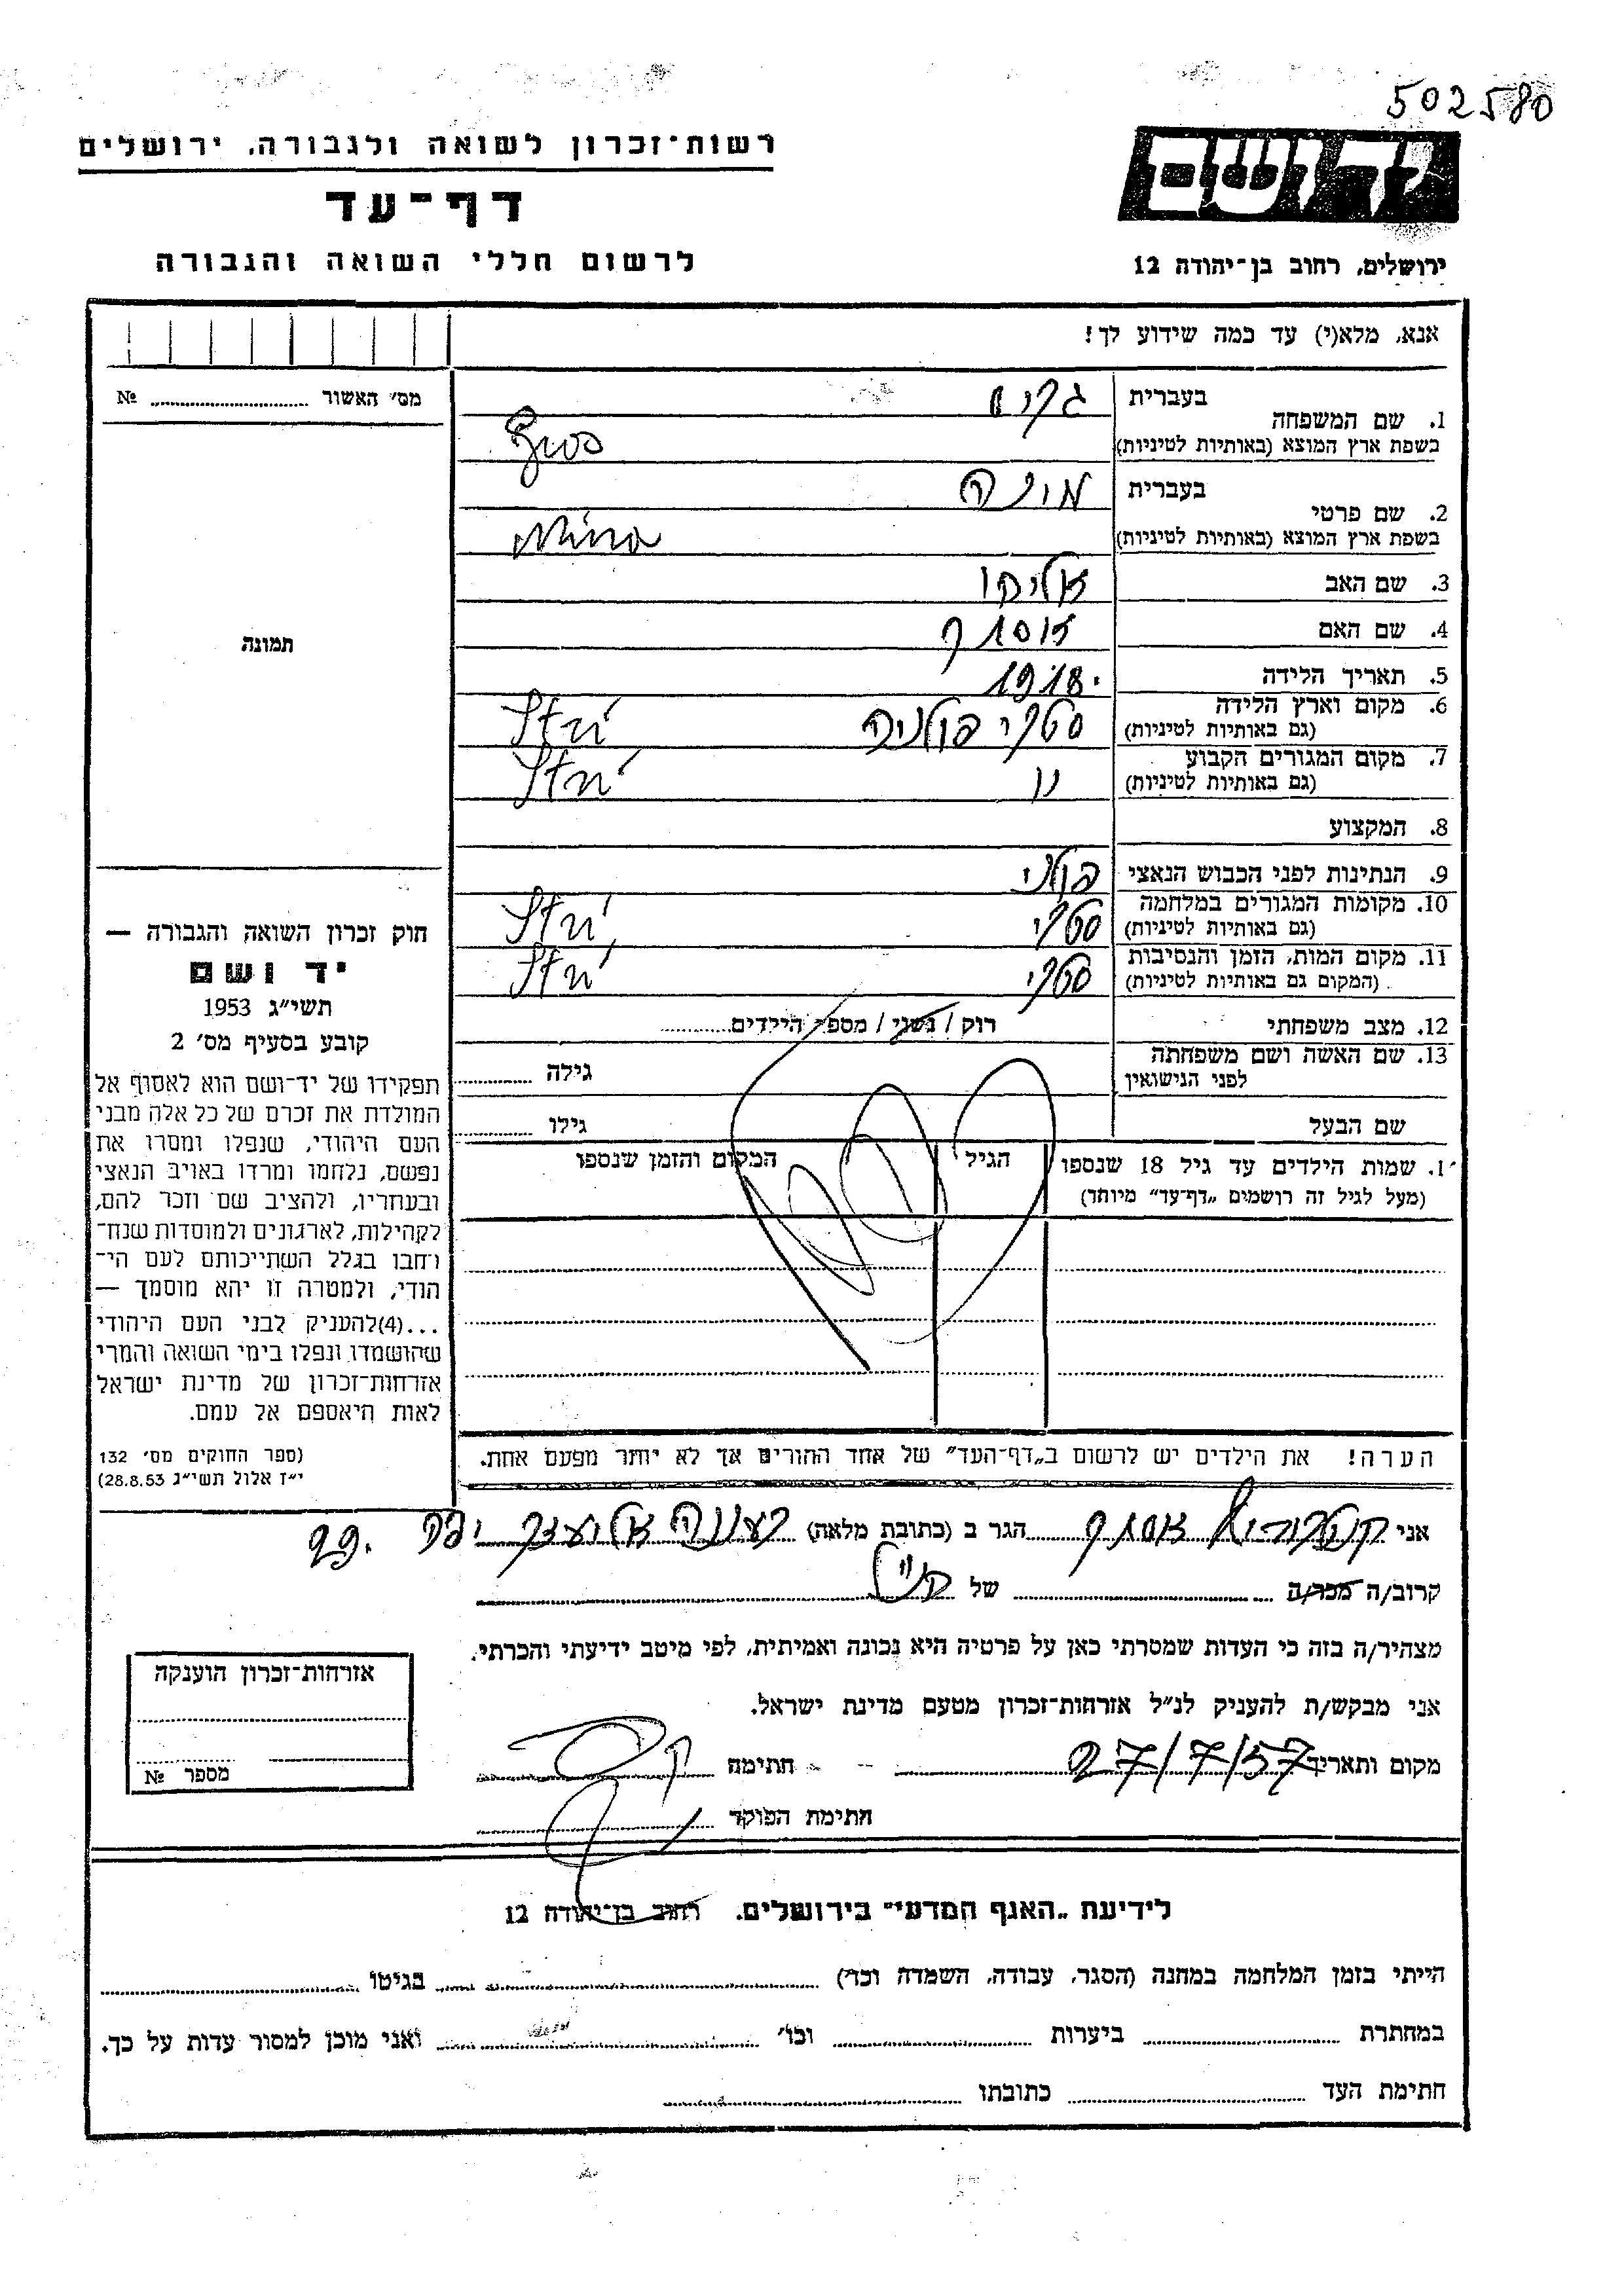 502580
רשות־זכרון לשואה ולגבורה, ירושלים
דף־עד
לרשום חללי השואה והגבורה
יד ושם
ירושלים, רחוב בן־יהודה 12
אנא, מלא(י) עד כמה שידוע לך!
מס׳ האשור № ..........
1. שם המשפחה
בעברית
בשפת ארץ המוצא (באותיות לטיניות)
2. שם פרטי
בעברית מינה
בשפת ארץ המוצא (באותיות לטיניות) Mina
3. שם האב אליהו
4. שם האם אסתר
5. תאריך הלידה 1918.
6. מקום וארץ הלידה
(גם באותיות לטיניות) סטרי פולניה Stri
7. מקום המגורים הקבוע
(גם באותיות לטיניות) " Stri
8. המקצוע
9. הנתינות לפני הכבוש הנאצי פולני
10. מקומות המגורים במלחמה
(גם באותיות לטיניות) סטרי Stri
11. מקום המות, הזמן והנסיבות
(המקום גם באותיות לטיניות) סטרי Stri
12. מצב משפחתי רוק / נשוי / מספר הילדים..........
13. שם האשה ושם משפחתה
לפני הנישואין גילה ..........
שם הבעל גילו ..........
1. שמות הילדים עד גיל 18 שנספו
(מעל לגיל זה רושמים „דף־עד” מיוחד)
הגיל
המקום והזמן שנספו
הערה! את הילדים יש לרשום ב„דף־העד” של אחד ההורים אך לא יותר מפעם אחת.
תמונה
חוק זכרון השואה והגבורה —
יד ושם
תשי״ג 1953
קובע בסעיף מס׳ 2
תפקידו של יד־ושם הוא לאסוף אל
המולדת את זכרם של כל אלה מבני
העם היהודי, שנפלו ומסרו את
נפשם, נלחמו ומרדו באויב הנאצי
ובעוזריו, ולהציב שם וזכר להם,
לקהילות, לארגונים ולמוסדות שנח־
רחבו בגלל השתייכותם לעם הי־
הודי, ולמטרה זו יהא מוסמך —
...(4)להעניק לבני העם היהודי
שהושמדו ונפלו בימי השואה והמרי
אזרחות־זכרון של מדינת ישראל
לאות היאספם אל עמם.
(ספר החוקים מס׳ 132
י״ז אלול תשי״ג 28.8.53)
אני אסתר הגר ב (כתובת מלאה) רעננה 99.
קרוב/ה מכר/ה .......... של
מצהיר/ה בזה כי העדות שמסרתי כאן על פרטיה היא נכונה ואמיתית, לפי מיטב ידיעתי והכרתי.
אני מבקש/ת להעניק לנ״ל אזרחות־זכרון מטעם מדינת ישראל.
מקום ותאריך 27/7/57 חתימה
חתימת הפוקד
אזרחות־זכרון הוענקה
מספר №
לידיעת „האגף המדעי” בירושלים. רחוב בן־יהודה 12
הייתי בזמן המלחמה במחנה (הסגר, עבודה, השמדה וכד׳) .......... בגיטו ..........
במחתרת .......... ביערות .......... וכו׳ .......... ואני מוכן למסור עדות על כך.
חתימת העד .......... כתובתו ..........